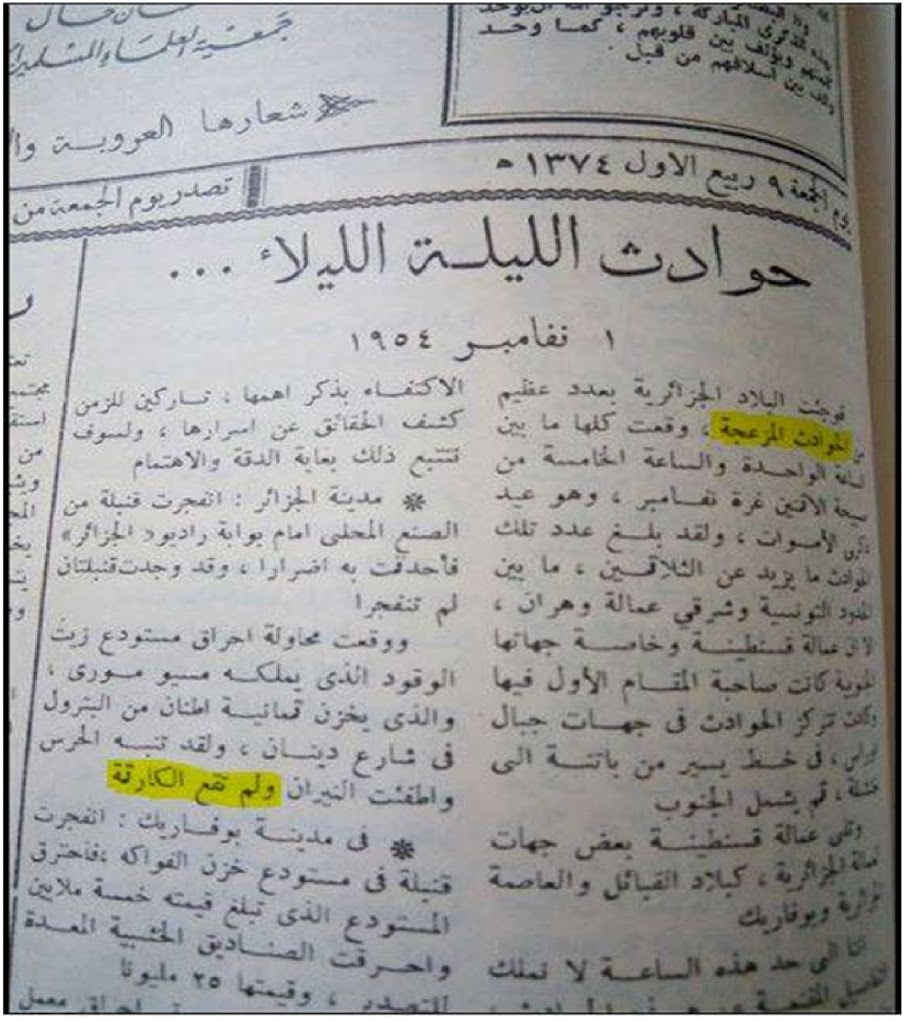 جمعية العلماء المسلمين
شعارها العروبة
كلمتهم ويؤلف بين قلوبهم ، كما وحد
بين اسلافهم من قبل
يوم الجمعة ٩ ربيع الاول ١٣٧٤ ه
تصدر يوم الجمعة من
حوادث الليلة الليلاء ...
١ نفامبر ١٩٥٤
فوجئت البلاد الجزائرية بعدد عظيم
من الحوادث المزعجة ، وقعت كلها ما بين
الساعة الواحدة والساعة الخامسة من
صبيحة الاثنين غرة نفامبر ، وهو عيد
ذكرى الأموات ، ولقد بلغ عدد تلك
الحوادث ما يزيد عن الثلاثين ، ما بين
الحدود التونسية وشرقي عمالة وهران ،
الا ان عمالة قسنطينة وخاصة جهاتها
الجنوبية كانت صاحبة المقام الأول فيها
وكانت تتركز الحوادث فى جهات جبال
اوراس ، فى خط يسير من باتنة الى
خنشلة ، ثم يشمل الجنوب
وتلى عمالة قسنطينة بعض جهات
عمالة الجزائرية ، كبلاد القبائل والعاصمة
الجزائرية وبوفاريك
اننا الى حد هذه الساعة لا نملك
الاكتفاء بذكر اهمها ، تاركين للزمن
كشف الحقائق عن اسرارها ، ولسوف
نتتبع ذلك بغاية الدقة والاهتمام
* مدينة الجزائر : انفجرت قنبلة من
الصنع المحلى امام بوابة راديو « الجزائر »
فأحدقت به اضرارا ، وقد وجدت قنبلتان
لم تنفجرا
ووقعت محاولة احراق مستودع زيت
الوقود الذى يملكه مسيو مورى ،
والذى يخزن ثمانية اطنان من البترول
فى شارع دينان ، ولقد تنبه الحرس
واطفئت النيران ولم تقع الكارثة
* فى مدينة بوفاريك : انفجرت
قنبلة فى مستودع خزن الفواكه ،فاحترق
المستودع الذى تبلغ قيمته خمسة ملايين
واحرقت الصناديق الخشبية المعدة
للتصدير ، وقيمتها ٢٥ مليونا
احراق معمل